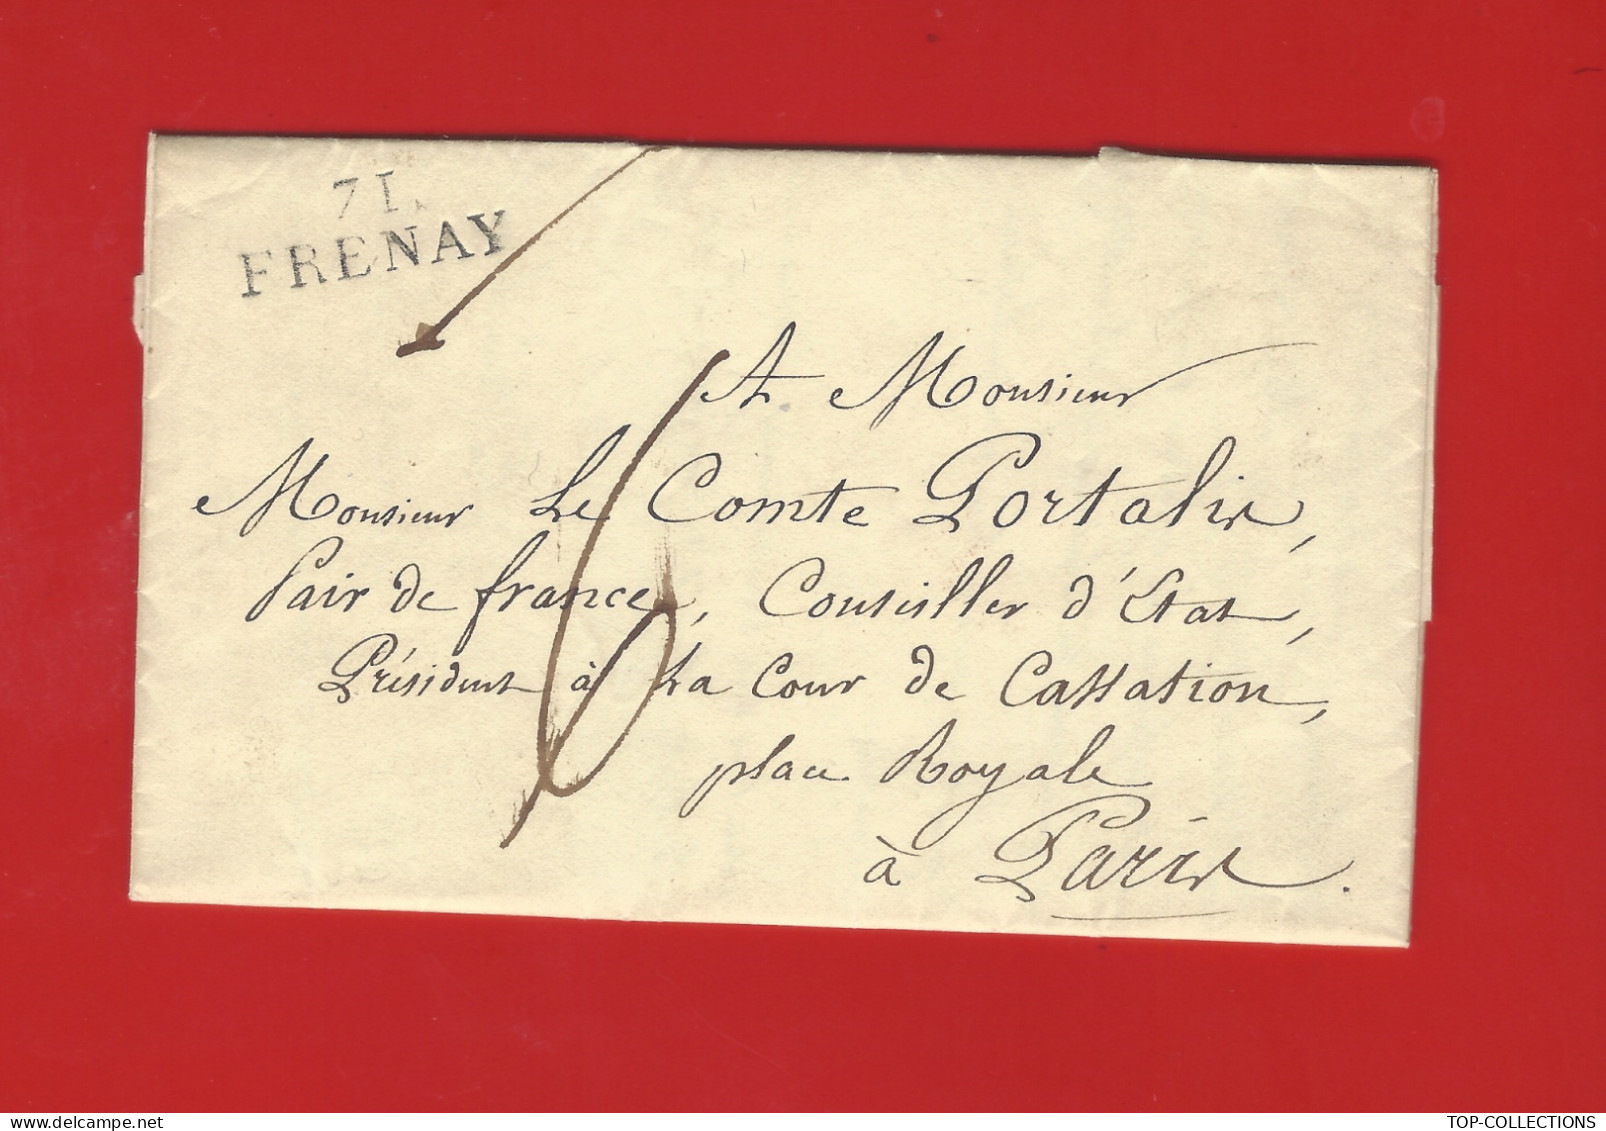 71
FRENAY
A Monsieur
Monsieur Le Comte Portalis,
Pair de france, Conseiller d'Etat,
Président à La Cour de Cassation,
place Royale
à Paris.
6
TOP-COLLECTIONS